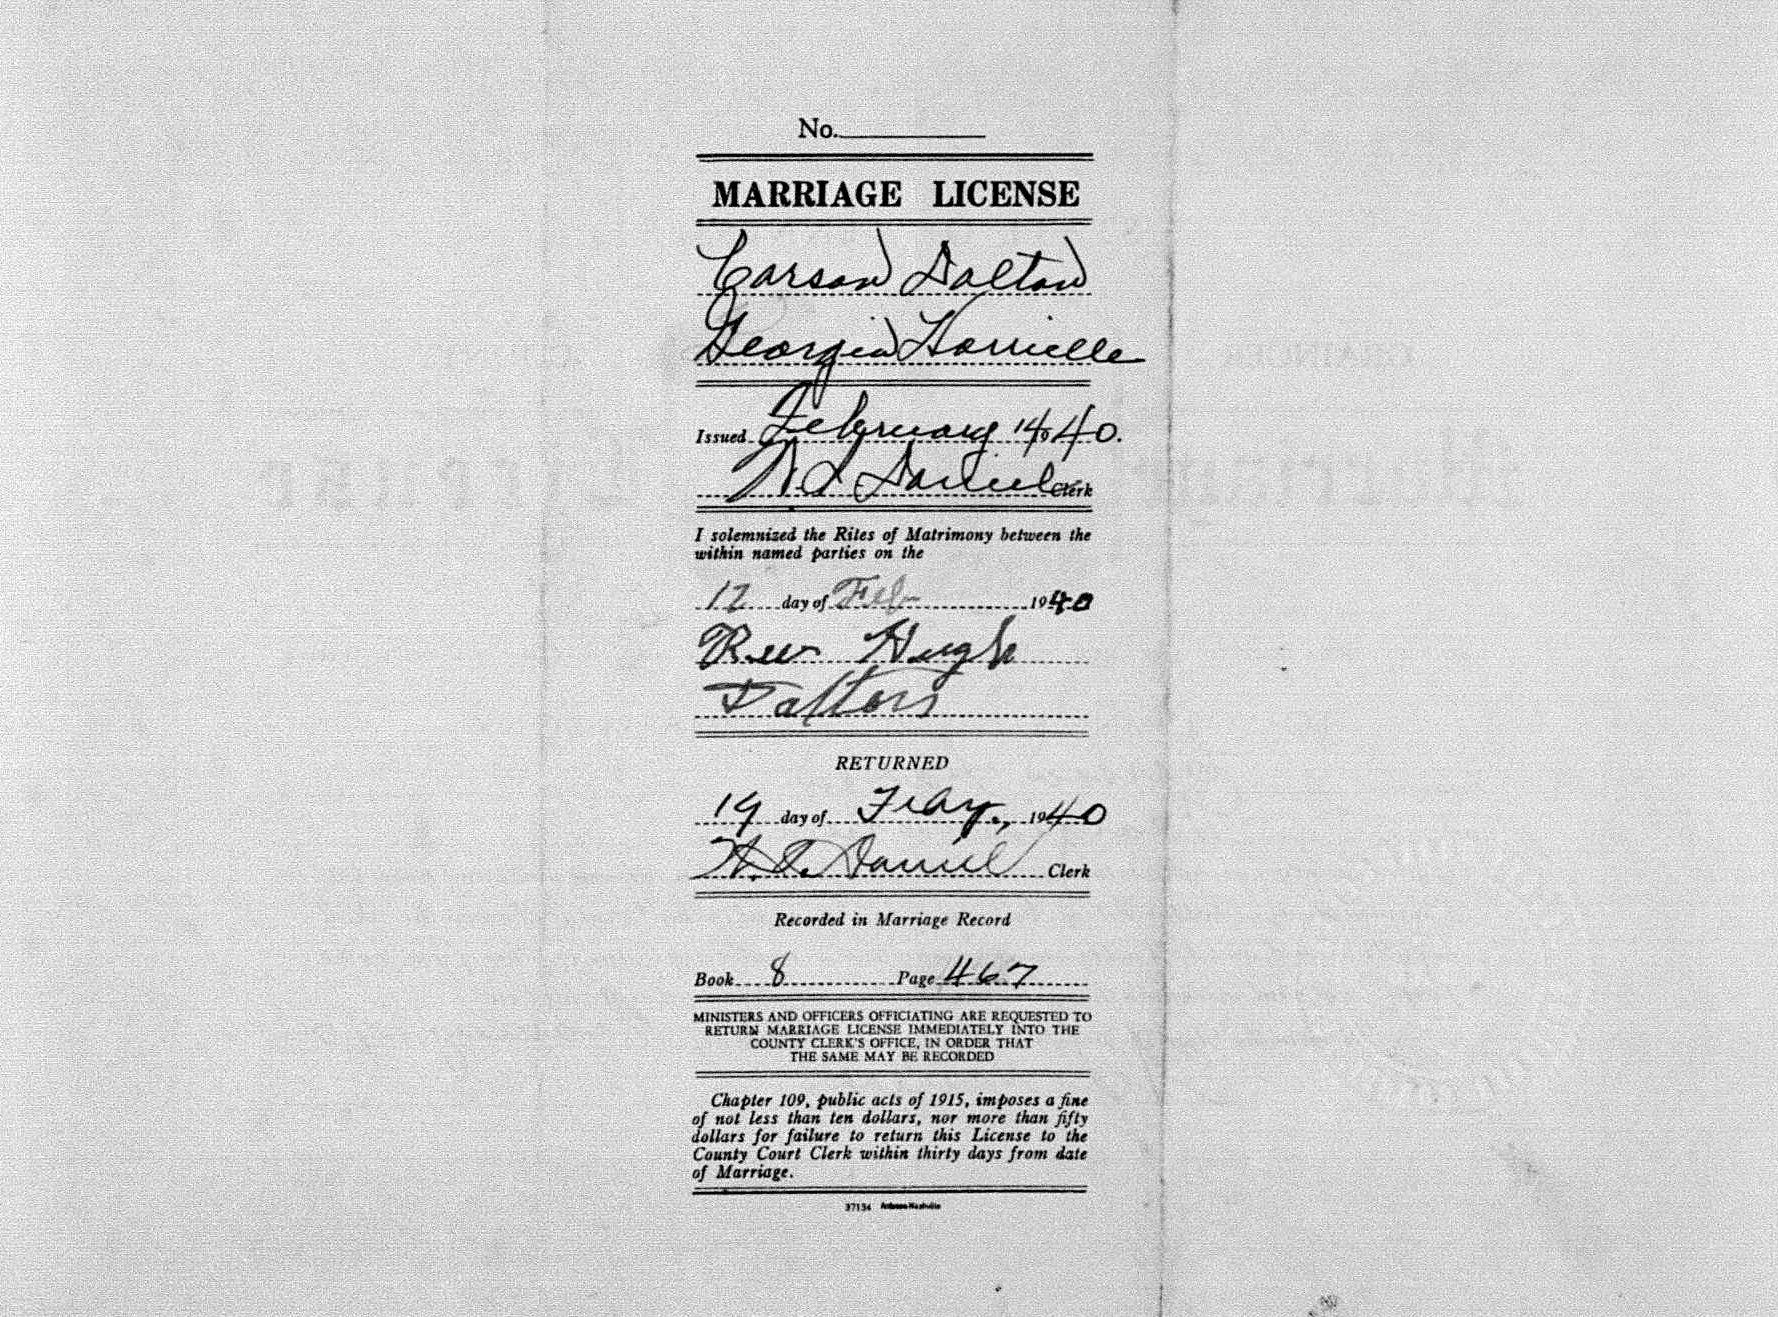 No.
MARRIAGE LICENSE
Carson Dalton
Georgia
Issued February 14, 40.
Daniel Clerk
I solemnized the Rites of Matrimony between the
within named parties on the
17 day of Feb 1940
Rev Hugh
Dalton
RETURNED
19 day of Feby., 1940
Daniel Clerk
Recorded in Marriage Record
Book 8 Page 467
MINISTERS AND OFFICERS OFFICIATING ARE REQUESTED TO
RETURN MARRIAGE LICENSE IMMEDIATELY INTO THE
COUNTY CLERK'S OFFICE, IN ORDER THAT
THE SAME MAY BE RECORDED
Chapter 109, public acts of 1915, imposes a fine
of not less than ten dollars, nor more than fifty
dollars for failure to return this License to the
County Court Clerk within thirty days from date
of Marriage.
37134